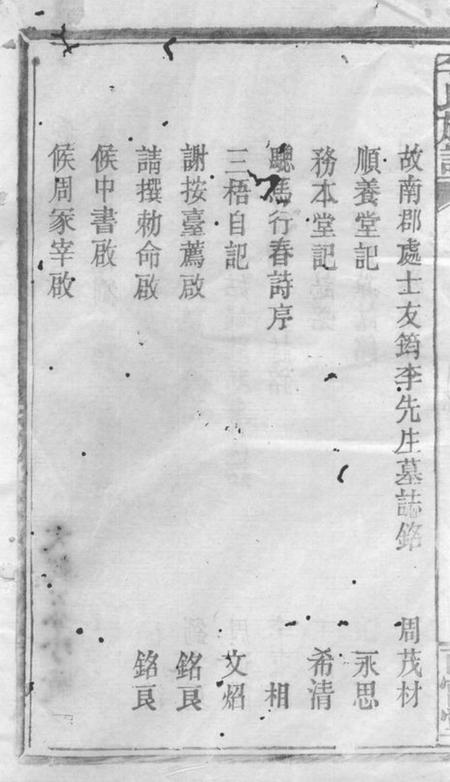 故南郡處士友筠李先生墓誌銘 周茂材
順養堂記 永思
務本堂記 希清
驄馬行春詩序 相
三梧自記 文炤
謝按臺薦啟 銘良
請撰勅命啟 銘良
候中書啟
候周冢宰啟